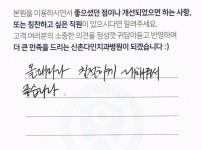 본원을 이용하시면서 좋으셨던 점이나 개선되었으면 하는 사항,
또는 칭찬하고 싶은 직원이 있으시다면 알려주세요.
고객 여러분의 소중한 의견을 정성껏 귀담아듣고 반영하여
더 큰 만족을 드리는 신촌다인치과병원이 되겠습니다 :)
올때마다 친절하게
좋습니다.